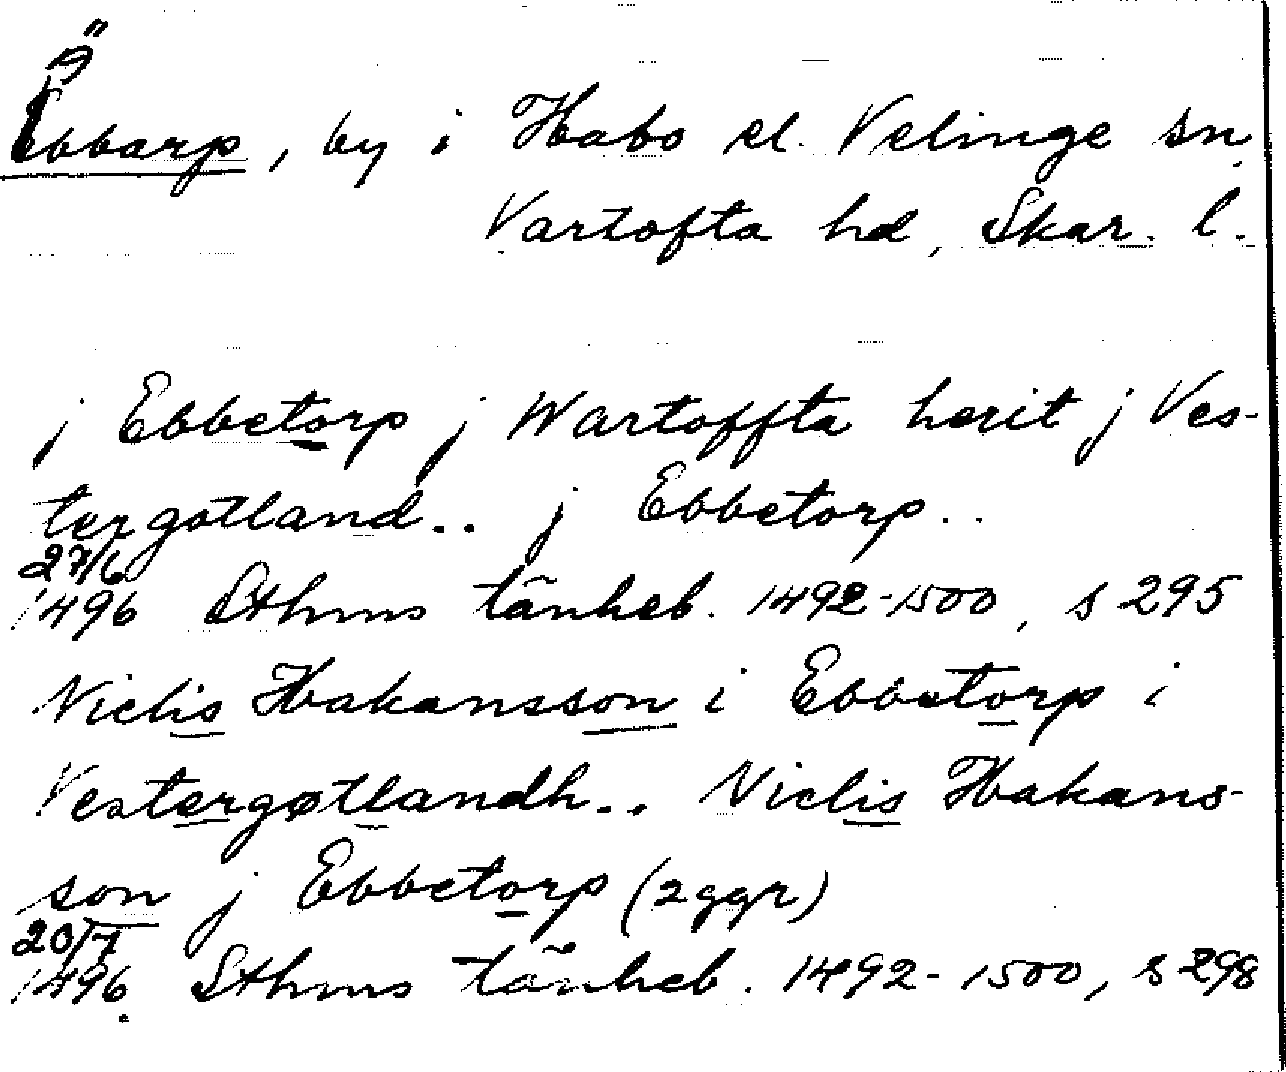 Ö
Ebbarp, by i Habo el. Velinge sn
Vartofta hd, Skar. l.
j Ebbetorp j Wartoffta herit j Ves-
tergotland.. j Ebbetorp..
27/6
1496 Sthms tänkeb. 1492-1500, s 295
Niclis Hakansson i Ebbetorp i
Vestergøtlandh.. Niclis Hakans-
son j Ebbetorp (2 ggr)
20/7
1496 Sthms tänkeb. 1492-1500, s 298